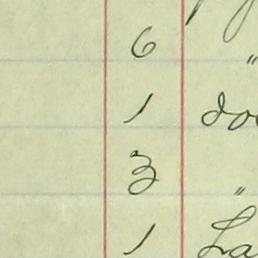 6 "
1 do
3 "
1 La